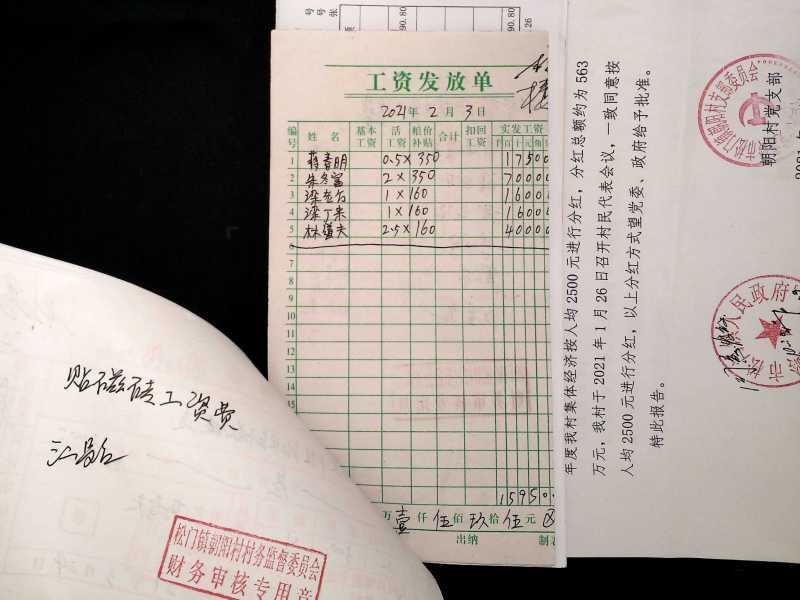 工资发放单
2021年 2 月 3 日
编号 姓 名 基本工资 活工资 粮价补贴 合计 扣回工资 实发工资
千 百 十 元 角
1 0.5×350 17500
2 2×350 70000
3 1×160 16000
4 1×160 16000
5 2.5×160 40000
6
7
8
9
10
11
12
13
14
15
159500
万 壹 仟 伍 佰 玖 拾 伍 元
出纳 制
贴磁砖工资费
松门镇朝阳村村务监督委员会
财务审核专用章
年度我村集体经济按人均 2500 元进行分红，分红总额约为 563
万元，我村于 2021 年 1 月 26 日召开村民代表会议，一致同意按
人均 2500 元进行分红，以上分红方式望党委、政府给予批准。
特此报告。
朝阳村党支部